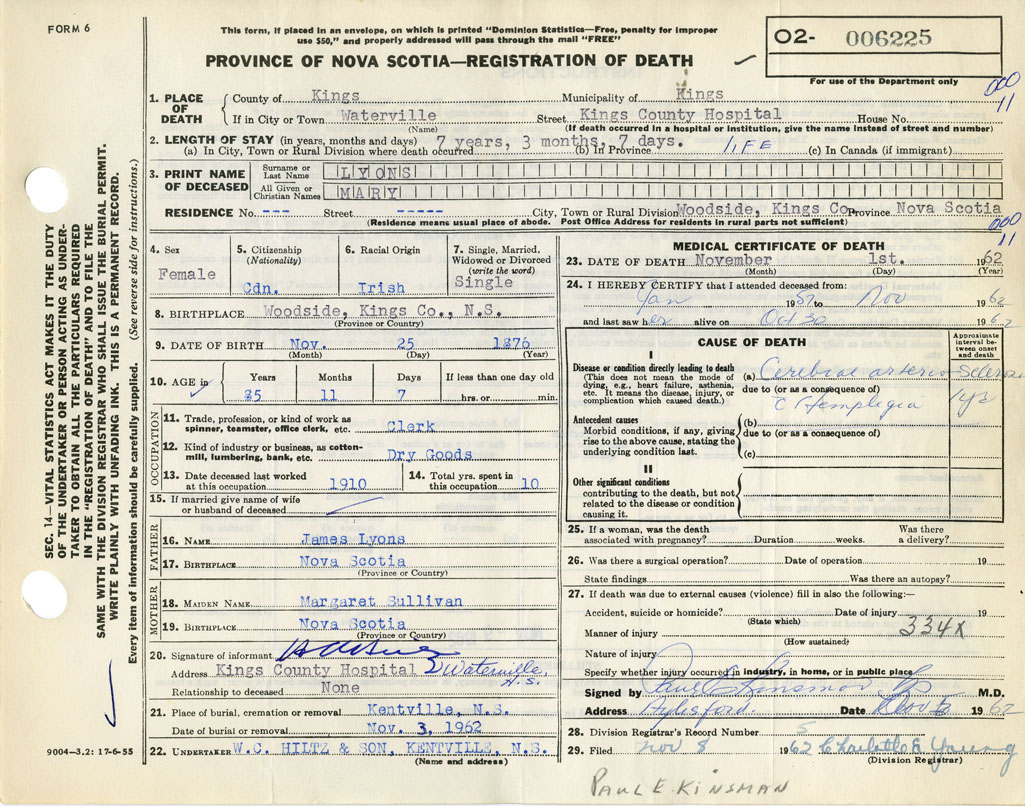 FORM 6
This form, if placed in an envelope, on which is printed "Dominion Statistics—Free, penalty for improper
use $50," and properly addressed will pass through the mail "FREE"
PROVINCE OF NOVA SCOTIA—REGISTRATION OF DEATH
02- 006225
For use of the Department only
000
11
SEC. 14—VITAL STATISTICS ACT MAKES IT THE DUTY
OF THE UNDERTAKER OR PERSON ACTING AS UNDER-
TAKER TO OBTAIN ALL THE PARTICULARS REQUIRED
IN THE "REGISTRATION OF DEATH" AND TO FILE THE
SAME WITH THE DIVISION REGISTRAR WHO SHALL ISSUE THE BURIAL PERMIT.
WRITE PLAINLY WITH UNFADING INK. THIS IS A PERMANENT RECORD.
Every item of information should be carefully supplied. (See reverse side for instructions.)
1. PLACE OF DEATH County of Kings Municipality of Kings
If in City or Town Waterville Street Kings County Hospital House No.
(Name) (If death occurred in a hospital or institution, give the name instead of street and number)
2. LENGTH OF STAY (in years, months and days)
(a) In City, Town or Rural Division where death occurred 7 years, 3 months, 7 days. (b) In Province LIFE (c) In Canada (if immigrant)
3. PRINT NAME OF DECEASED
Surname or Last Name LYONS
All Given or Christian Names MARY
RESIDENCE No. --- Street ----- City, Town or Rural Division Woodside, Kings Co Province Nova Scotia
(Residence means usual place of abode. Post Office Address for residents in rural parts not sufficient)
000
11
4. Sex
Female
5. Citizenship
(Nationality)
Cdn.
6. Racial Origin
Irish
7. Single, Married, Widowed or Divorced
(write the word)
Single
8. BIRTHPLACE Woodside, Kings Co., N.S.
(Province or Country)
9. DATE OF BIRTH Nov. 25 1876
(Month) (Day) (Year)
10. AGE in Years Months Days If less than one day old
85 11 7 hrs. or min.
OCCUPATION
11. Trade, profession, or kind of work as
spinner, teamster, office clerk, etc. Clerk
12. Kind of industry or business, as cotton-
mill, lumbering, bank, etc. Dry Goods
13. Date deceased last worked
at this occupation 1910
14. Total yrs. spent in
this occupation 10
15. If married give name of wife
or husband of deceased
FATHER
16. NAME James Lyons
17. BIRTHPLACE Nova Scotia
(Province or Country)
MOTHER
18. MAIDEN NAME Margaret Sullivan
19. BIRTHPLACE Nova Scotia
(Province or Country)
20. Signature of informant
Address Kings County Hospital Waterville, N.S.
Relationship to deceased None
21. Place of burial, cremation or removal Kentville, N.S.
Date of burial or removal Nov. 3, 1962
22. UNDERTAKER W.C. HILTZ & SON, KENTVILLE, N.S.
(Name and address)
9004-3.2: 17-6-55
MEDICAL CERTIFICATE OF DEATH
23. DATE OF DEATH November 1st. 1962
(Month) (Day) (Year)
24. I HEREBY CERTIFY that I attended deceased from:
Jan 1957 to Nov 1962
and last saw her alive on Oct 30 1962
CAUSE OF DEATH
Approximate interval between onset and death
I
Disease or condition directly leading to death
(This does not mean the mode of
dying, e.g., heart failure, asthenia,
etc. It means the disease, injury, or
complication which caused death.)
(a) Cerebral arterio-Sclerosis
due to (or as a consequence of)
c Hemplegia
Antecedent causes
Morbid conditions, if any, giving
rise to the above cause, stating the
underlying condition last.
(b)
due to (or as a consequence of)
(c)
II
Other significant conditions
contributing to the death, but not
related to the disease or condition
causing it.
25. If a woman, was the death
associated with pregnancy? Duration weeks. Was there
a delivery?
26. Was there a surgical operation? Date of operation 19
State findings Was there an autopsy?
27. If death was due to external causes (violence) fill in also the following:—
Accident, suicide or homicide? Date of injury 19
(State which)
334X
Manner of injury
(How sustained)
Nature of injury
Specify whether injury occurred in industry, in home, or in public place
Signed by Paul E Kinsman M.D.
Address Aylesford. Date Nov 1962
28. Division Registrar's Record Number 5
29. Filed Nov 8 1962 Young
(Division Registrar)
PAUL E. KINSMAN